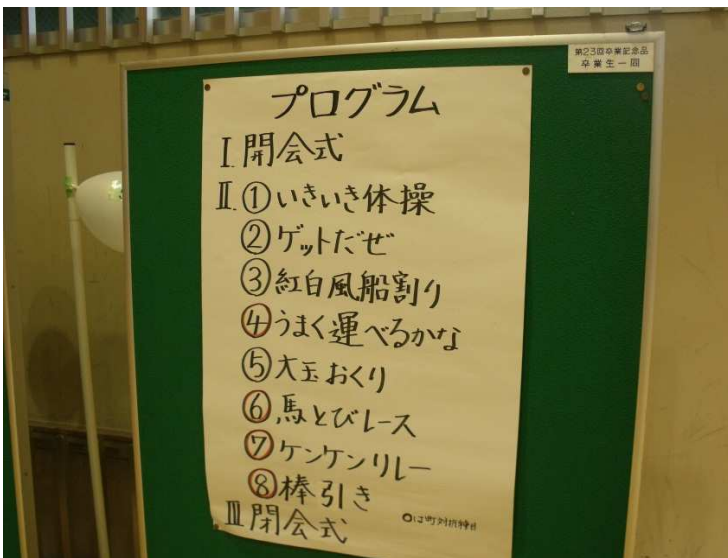 第23回卒業記念品
卒業生一同
プログラム
I. 開会式
II. ①いきいき体操
②ゲットだぜ
③紅白風船割り
④うまく運べるかな
⑤大玉おくり
⑥馬とびレース
⑦ケンケンリレー
⑧棒引き
III 閉会式
○は町対抗種目